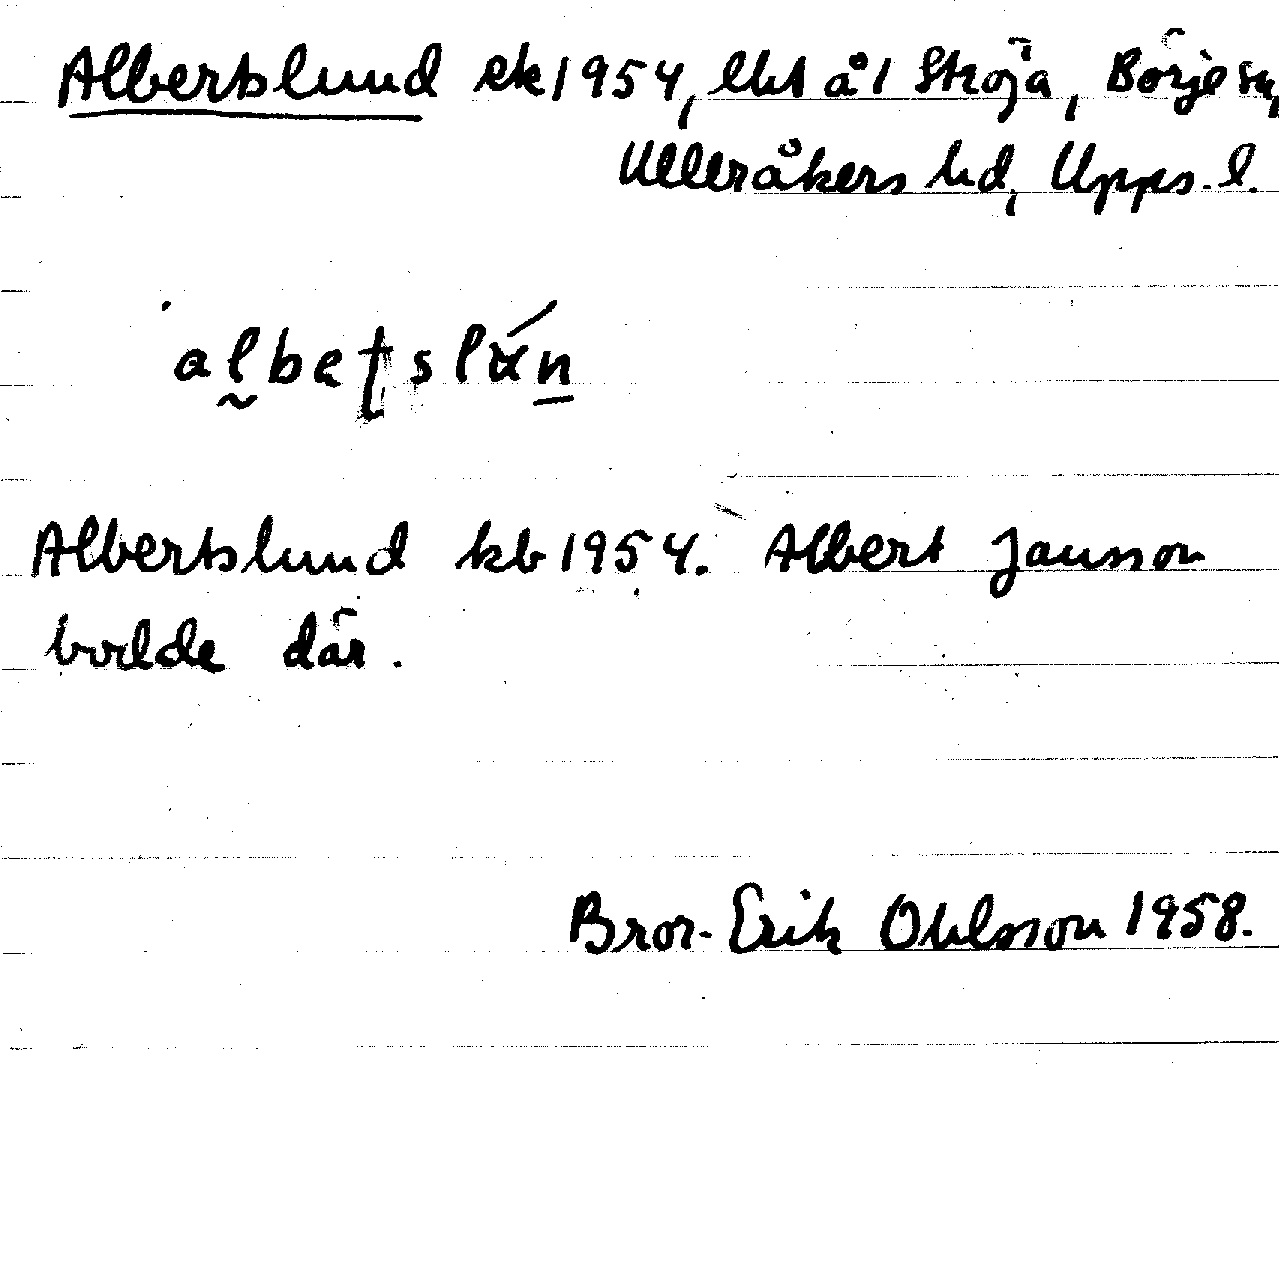 Albertslund ek 1954, lht å 1 Skōja, Börje sn,
Ulleråkers hd, Upps. l.
Albertslund kb 1954. Albert Jansson
bodde där.
Bror-Erik Ohlsson 1958.